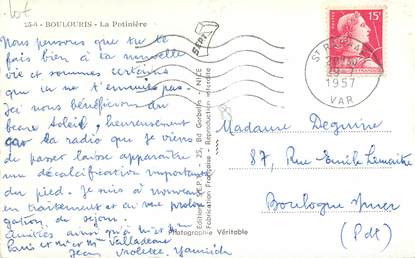 Lot
258 - BOULOURIS - La Potinière
Nous pensons que tu te
fais bien à ta nouvelle
vie et sommes certains
que tu ne t'ennuies pas.
Ici nous bénéficions du
beau soleil, heureusement
car la radio que je viens
de passer laisse apparaître
une décalcification importante
du pied. Je suis à nouveau
en traitement et ai une prolon
gation de séjour.
Amitiés ainsi qu'à M et Mme
Paris et M et Mme Valladeau
Jean Violette Yannick
Editions S.E.P.T. - 25, Bd Gorbella - NICE
Fabrication Française - Reproduction interdite
Photographie Véritable
SEPT
15F
1957
VAR
Madame Deguine
87, Rue Emile Lemaitre
Boulogne s/mer
(Pdt)